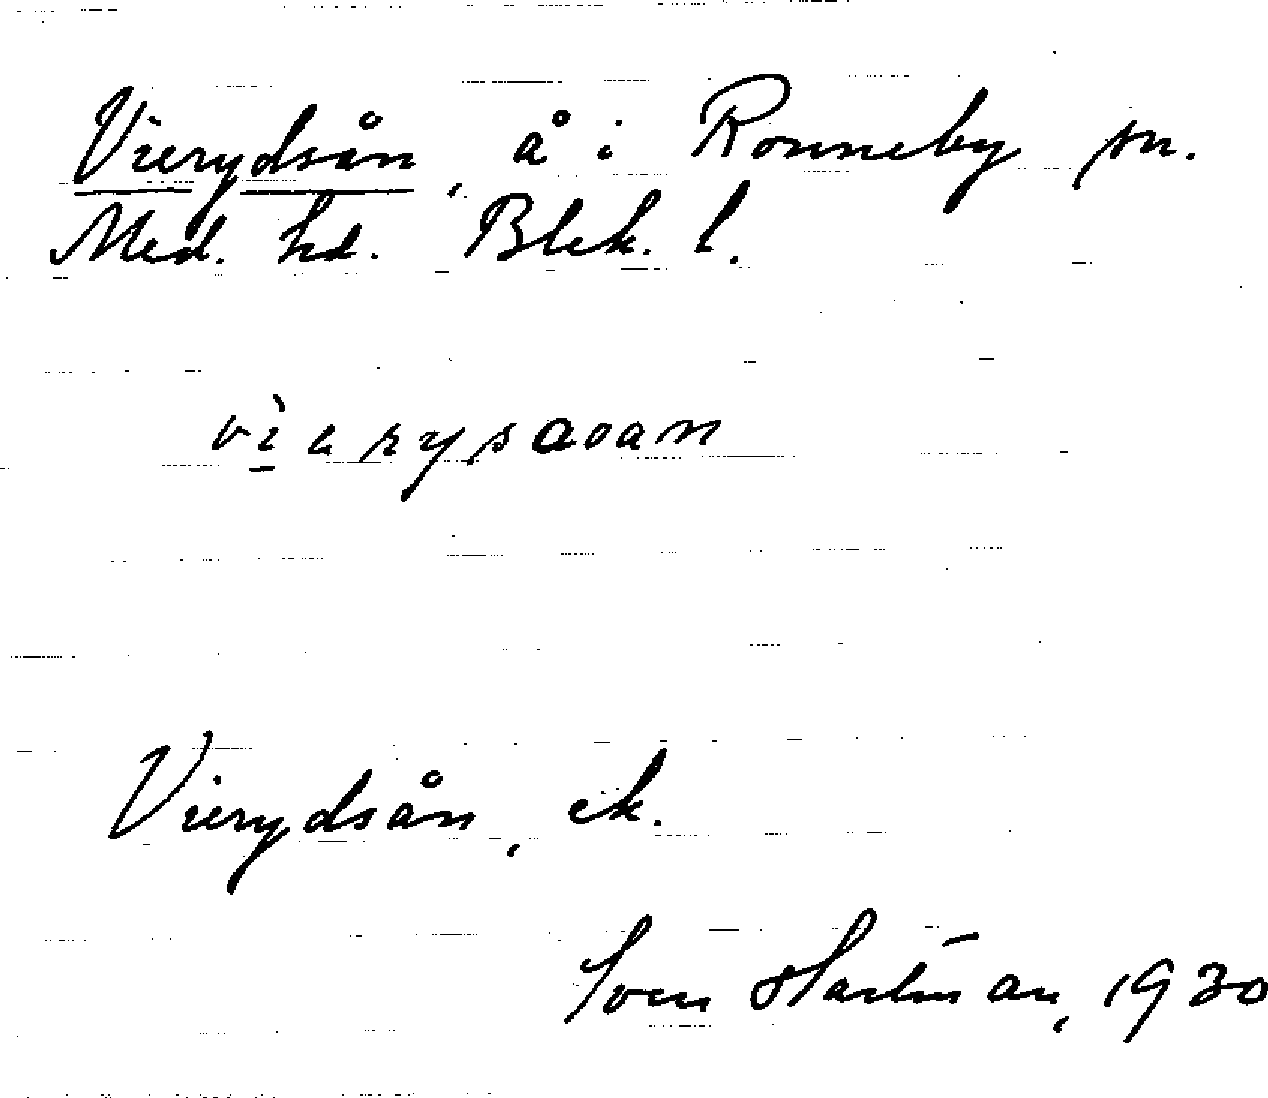 Vierydsån, å i Ronneby sn.
Med. hd. Blek. l.
Vierydsån, ek.
Sven Hartman, 1930